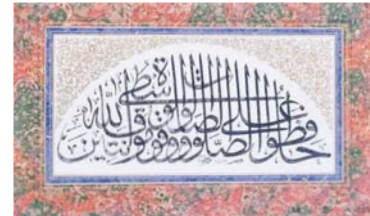 حافظوا على الصلوات والصلوة الوسطى وقوموا لله قانتين